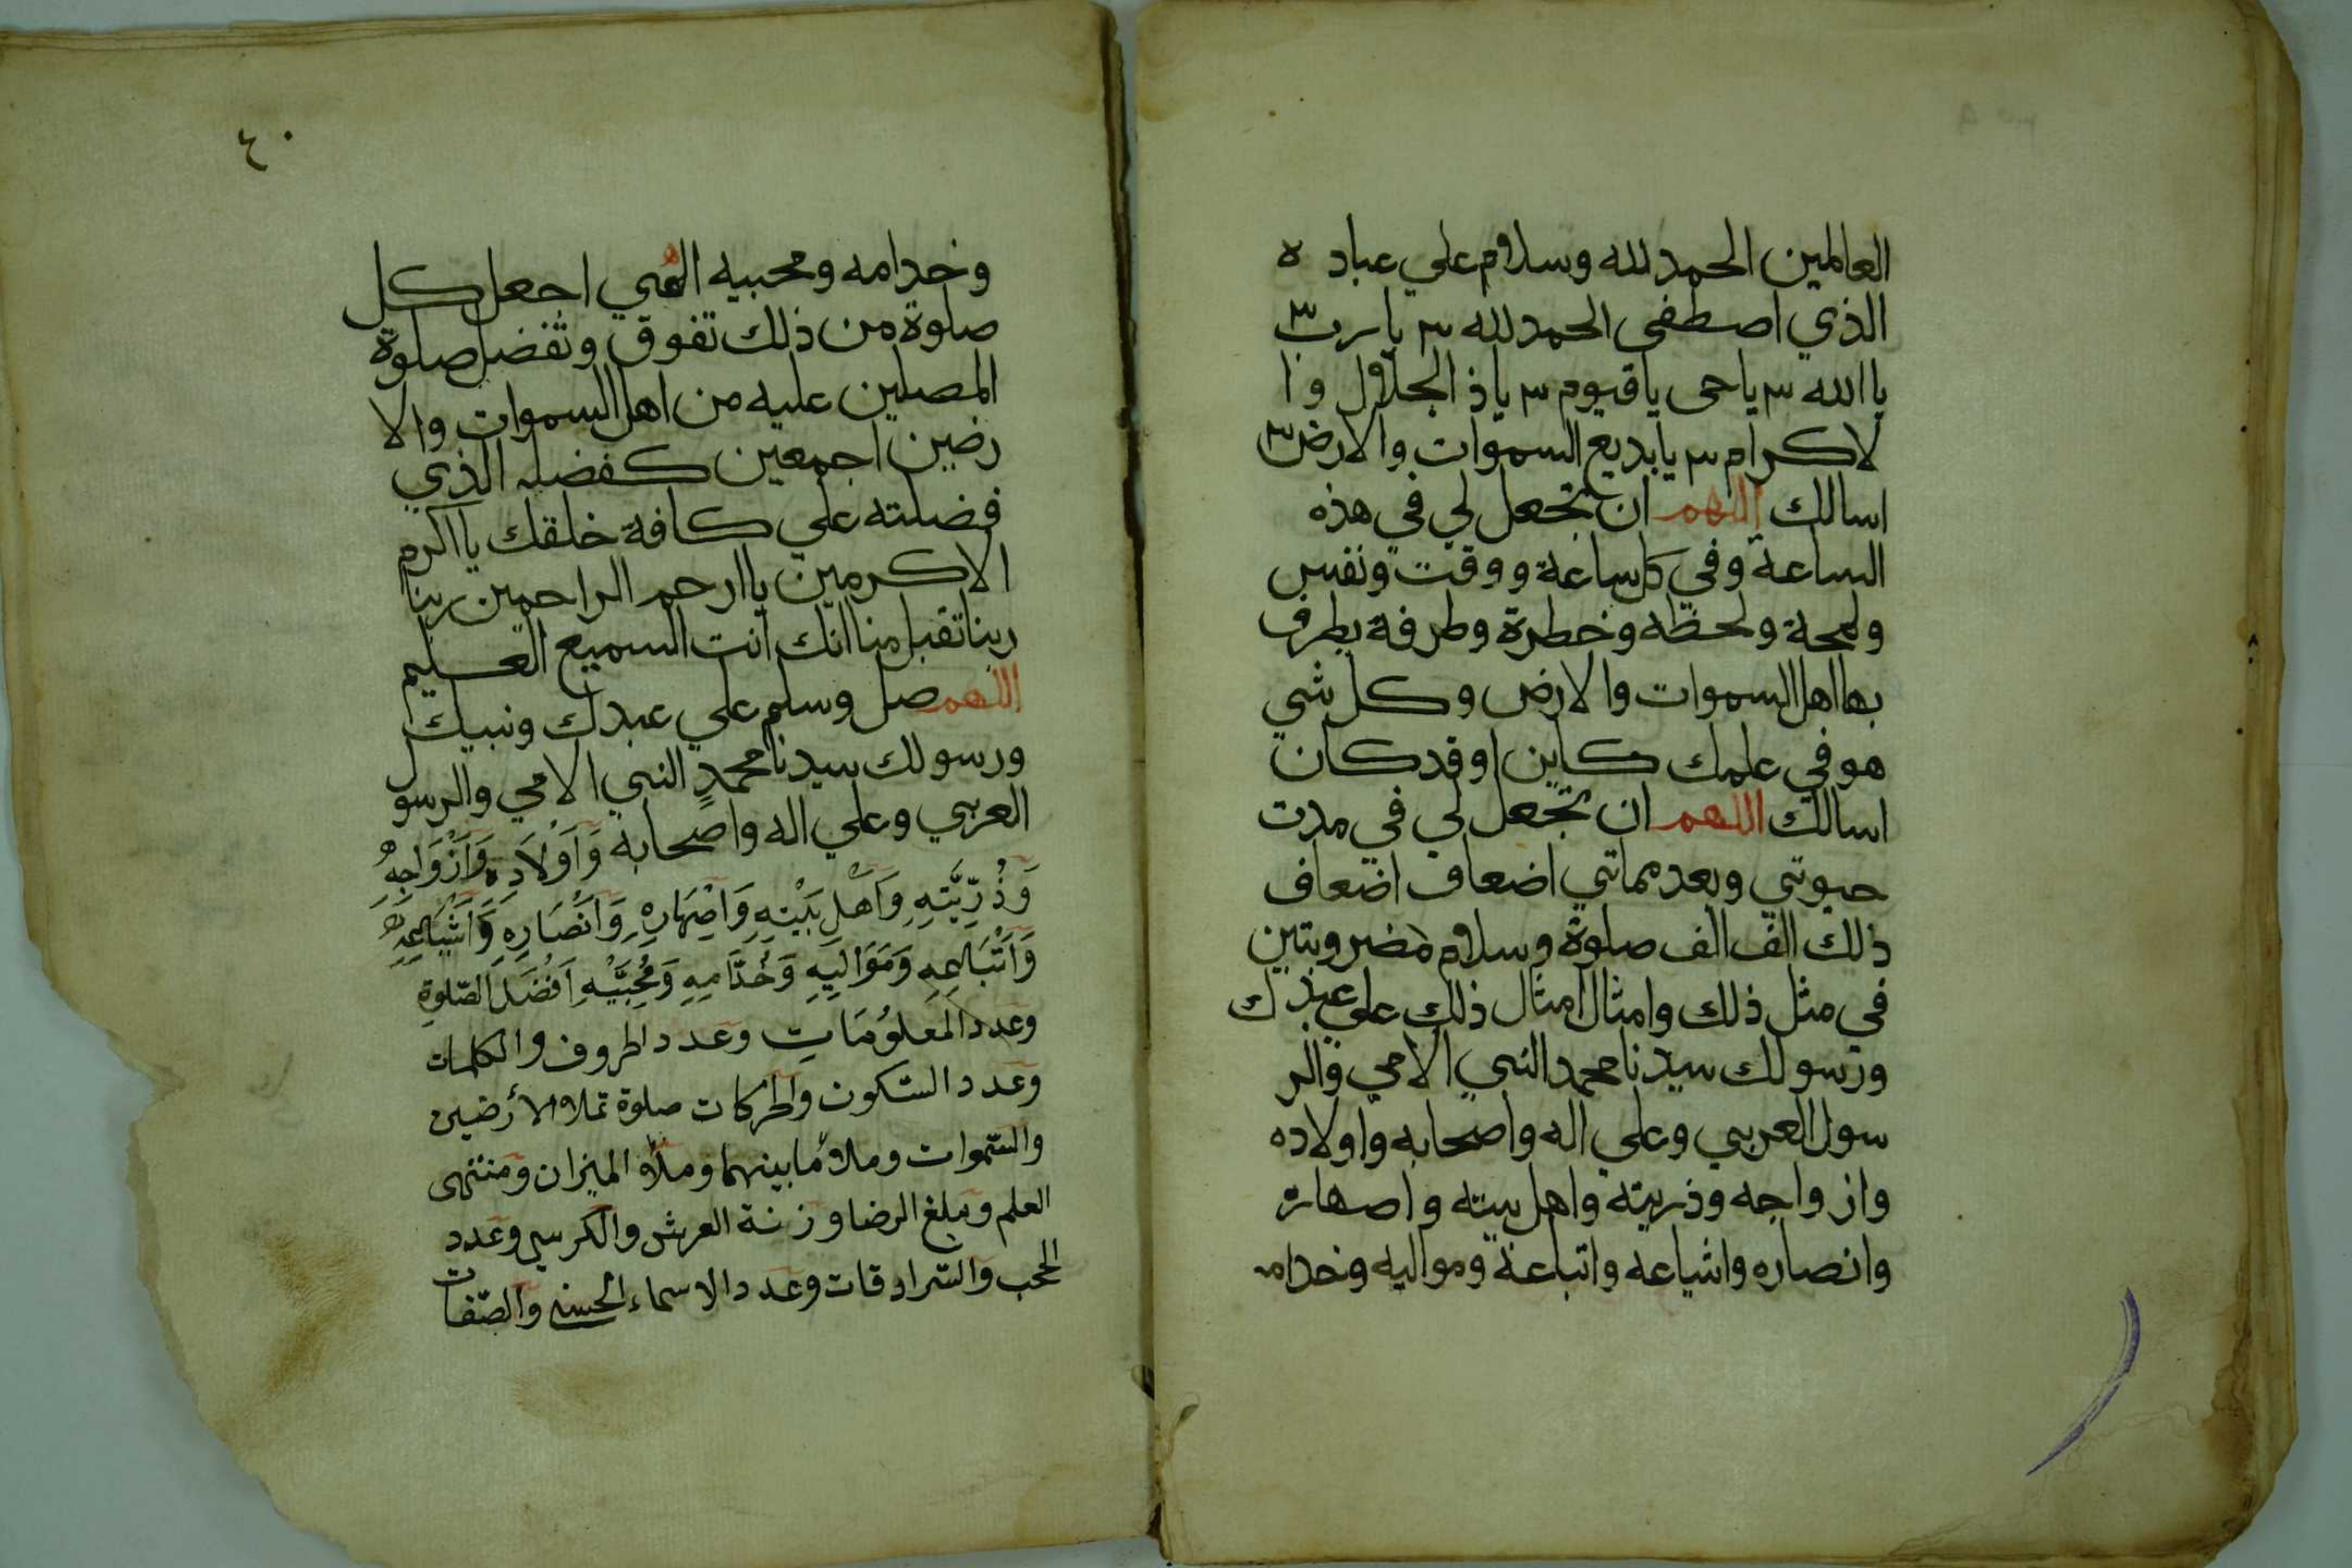 العالمين الحمد لله وسلام علي عباده
الذي اصطفى الحمد لله ٣ يا رب ٣
يا الله ٣ يا حى يا قيوم ٣ يا ذ الجلال وا
لاكرام ٣ يا بديع السموات والارض ٣
اسالك اللهم ان تجعل لي في هذه
الساعة وفي كل ساعة ووقت ونفس
ولمحة ولحظه وخطرة وطرفة يطرف
بها اهل السموات والارض وكل شي
هو في علمك كاين او قد كان
اسالك اللهم ان تجعل لي في مدت
حيوتي وبعد مماتي اضعاف اضعاف
ذلك الف الف صلوة وسلام مضروبتين
في مثل ذلك وامثال امثال ذلك علي عبدك
ورسولك سيدنا محمد النبي الامي والر
سول العربي وعلي اله واصحابه واولاده
وازواجه وذريته واهل بيته واصهاره
وانصاره واشياعه واتباعه ومواليه وخدامه
٤٠
وخدامه ومحبيه الهي اجعل كل
صلوة من ذلك تفوق وتفضل صلوة
المصلين عليه من اهل السموات والا
رضين اجمعين كفضله الذي
فضلته علي كافة خلقك يا اكرم
الاكرمين يا ارحم الراحمين ربنا
ربنا تقبل منا انك انت السميع العليم
اللهم صل وسلم علي عبدك ونبيك
ورسولك سيدنا محمدٍ النبي الامي والرسول
العربي وعلي اله واصحابه وَاَوْلَادِه وَاَزْوَاجِهِ
وَذُرِّيَّتِهِ وَاَهْلِ بَيْتِهِ وَاَصْهَارِهِ وَاَنْصَارِهِ وَاَشْيَاعِهِ
وَاَتْبَاعِهِ وَمَوَالِيهِ وَخُدَّامِهِ وَمُحِبِّيْهِ اَفْضَلَ الصّلوةِ
وعدد المَعلُومَاتِ وعدد الحروف والكلمات
وعدد السّكون والحركات صلوة تملاء الأرضين
والسّموات وملاءُ مابينهما وملاء الميزان ومنتهى
العلم ومبلغ الرضا وزنة العرش والكرسي وعدد
الحجب والسّرادقات وعدد الاسماء الحسنى والصّفات